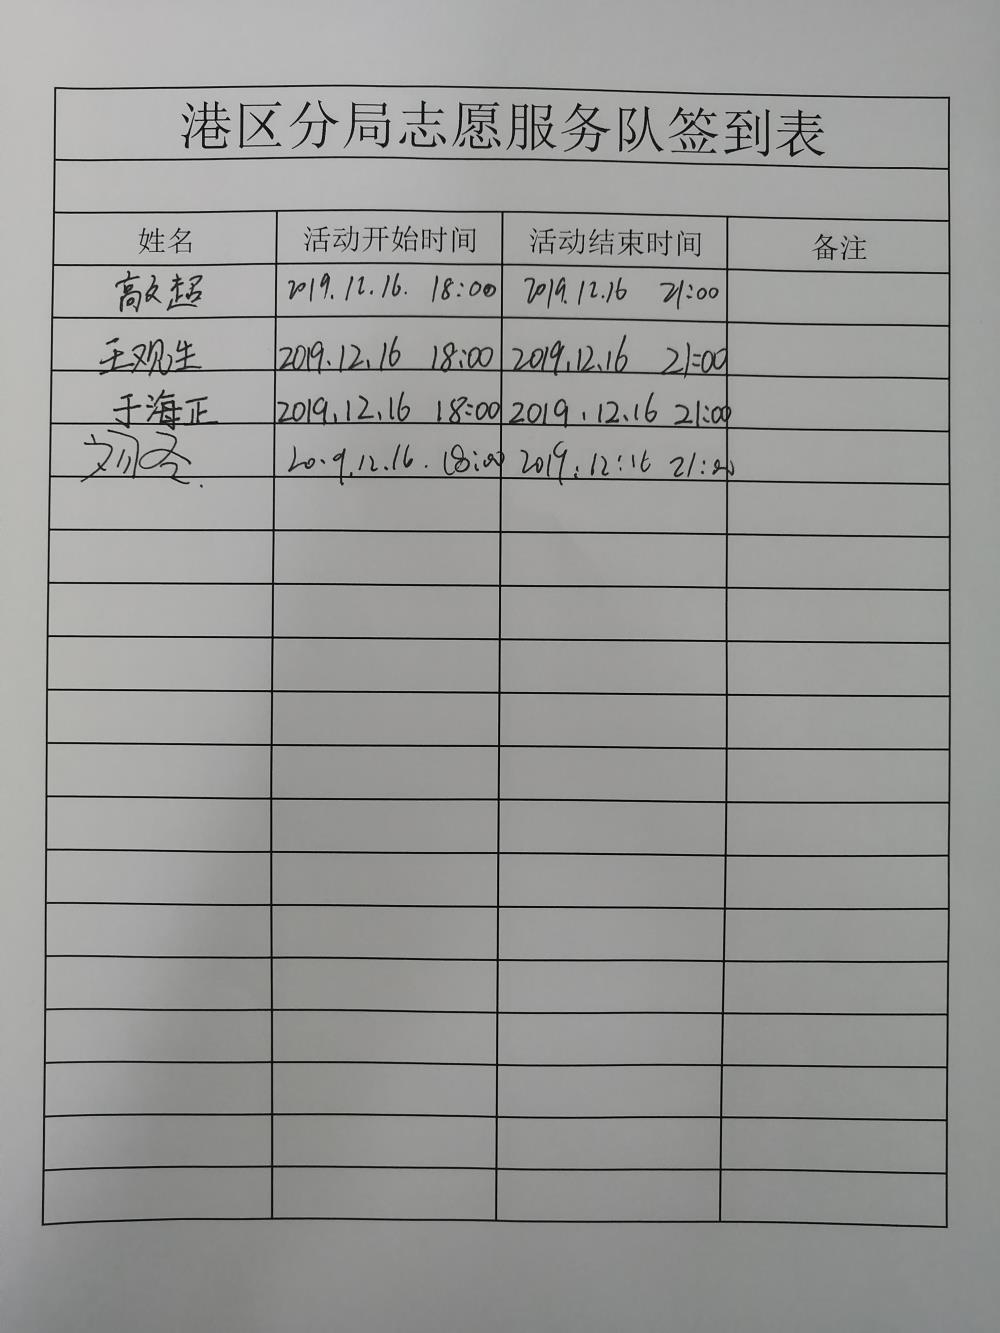 港区分局志愿服务队签到表
姓名 活动开始时间 活动结束时间 备注
高文超 2019.12.16. 18:00 2019.12.16 21:00
王观生 2019.12.16 18:00 2019.12.16 21:00
于海正 2019.12.16 18:00 2019.12.16 21:00
刘冬 2019.12.16. 18:00 2019.12.16 21:00